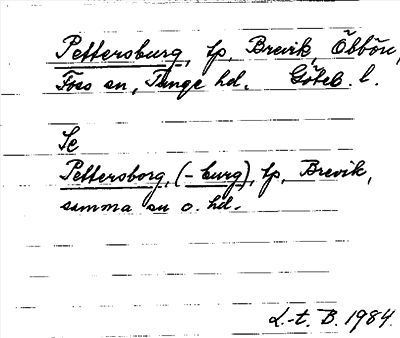 Pettersburg, lp, Brevik, Öbbön,
Foss sn, Tunge hd. Göteb. l.
Se
Pettersborg, (-burg), lp, Brevik,
samma sn o. hd.
L.-t. B. 1984.